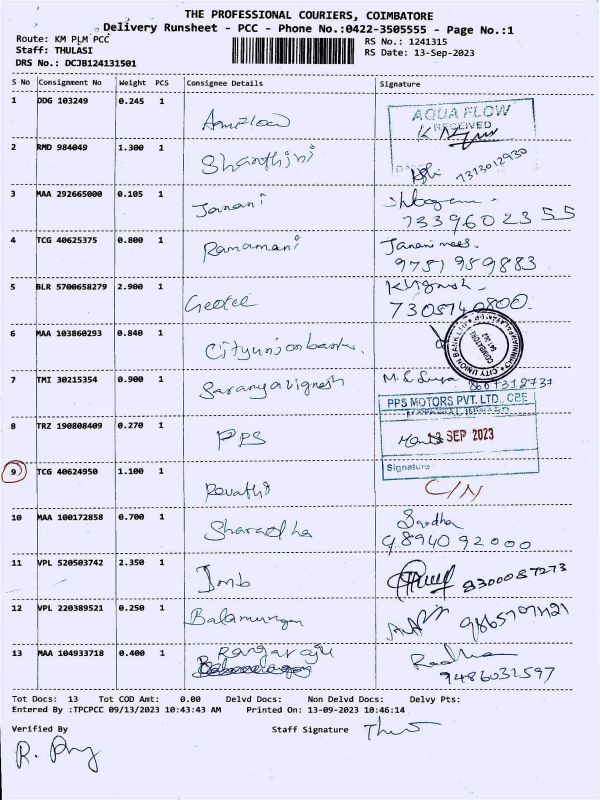 THE PROFESSIONAL COURIERS, COIMBATORE
Delivery Runsheet - PCC - Phone No.:0422-3505555 - Page No.:1
Route: KM PLM PCC
RS No.: 1241315
Staff: THULASI
RS Date: 13-Sep-2023
DRS No.: DCJB124131501
S No Consignment No Weight PCS Consignee Details Signature
1 DDG 103249 0.245 1
AQUA FLOW
RECEIVED
2 RMD 984049 1.300 1 Shanthini
3 MAA 292665000 0.105 1 Janani
7339602355
4 TCG 40625375 0.800 1 Ramamani
9751959883
5 BLR 5700658279 2.900 1 Geetee
7305740800
6 MAA 103860293 0.840 1 Cityunionbank
CITY UNION BANK LTD
COIMBATORE
7 TMI 30215354 0.900 1 Saranyavignesh
PPS MOTORS PVT. LTD., CBE
8 TRZ 190808409 0.270 1 PPS
13 SEP 2023
Signature
9 TCG 40624950 1.100 1 Revathi
C/N
10 MAA 100172858 0.700 1 Sharadha
Saradha
9894092000
11 VPL 520503742 2.350 1 Imb 9300087273
12 VPL 220389521 0.250 1 Balamurugan
13 MAA 104933718 0.400 1 Rangaraju
Radha
9486031597
Tot Docs: 13 Tot COD Amt: 0.00 Delvd Docs: Non Delvd Docs: Delvy Pts:
Entered By :TPCPCC 09/13/2023 10:43:43 AM Printed On: 13-09-2023 10:46:14
Verified By
Staff Signature